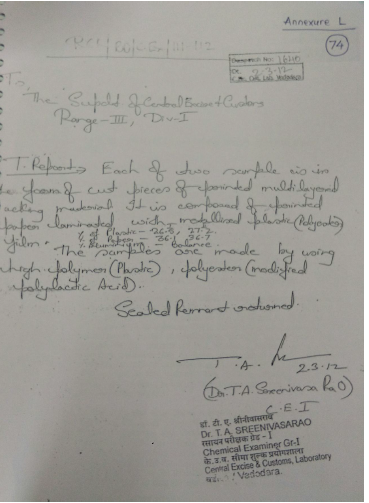 Annexure L
74
Despatch No: 1620
Dt. 2-3-12
To,
The Supdt of Central Excise & Customs
Range-III, Div-I
T. Report:- Each of two sample is in
the form of cut pieces of printed multilayered
packing material. It is composed of printed
paper laminated with metallised plastic (Polyester)
film.
% of Plastic - 26.8, 27.2
% of Paper - 36.1, 36.7
% Aluminium - Balance.
The samples are made by using
high polymer (Plastic), polyester (modified
polylactic Acid).
Sealed Remnant returned.
T.A.
2.3.12
(Dr. T.A. Sreenivasa Rao)
C.E.I
डॉ. टी. ए. श्रीनीवासराव
Dr. T. A. SREENIVASARAO
रसायन परीक्षक ग्रेड - I
Chemical Examiner Gr-I
के.उ.व. सीमा शुल्क प्रयोगशाला
Central Excise & Customs, Laboratory
Vadodara.